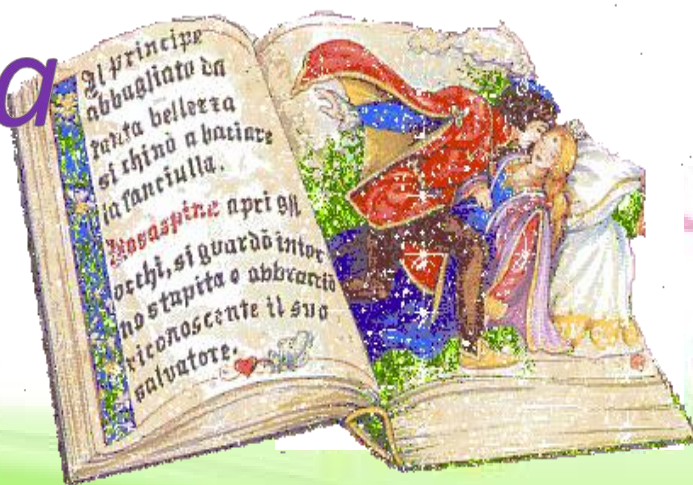 a
Il principe
abbagliato da
tanta bellezza
si chinò a baciare
la fanciulla.
Rosaspina aprì gli
occhi, si guardò intor
no stupita e abbracciò
riconoscente il suo
salvatore.